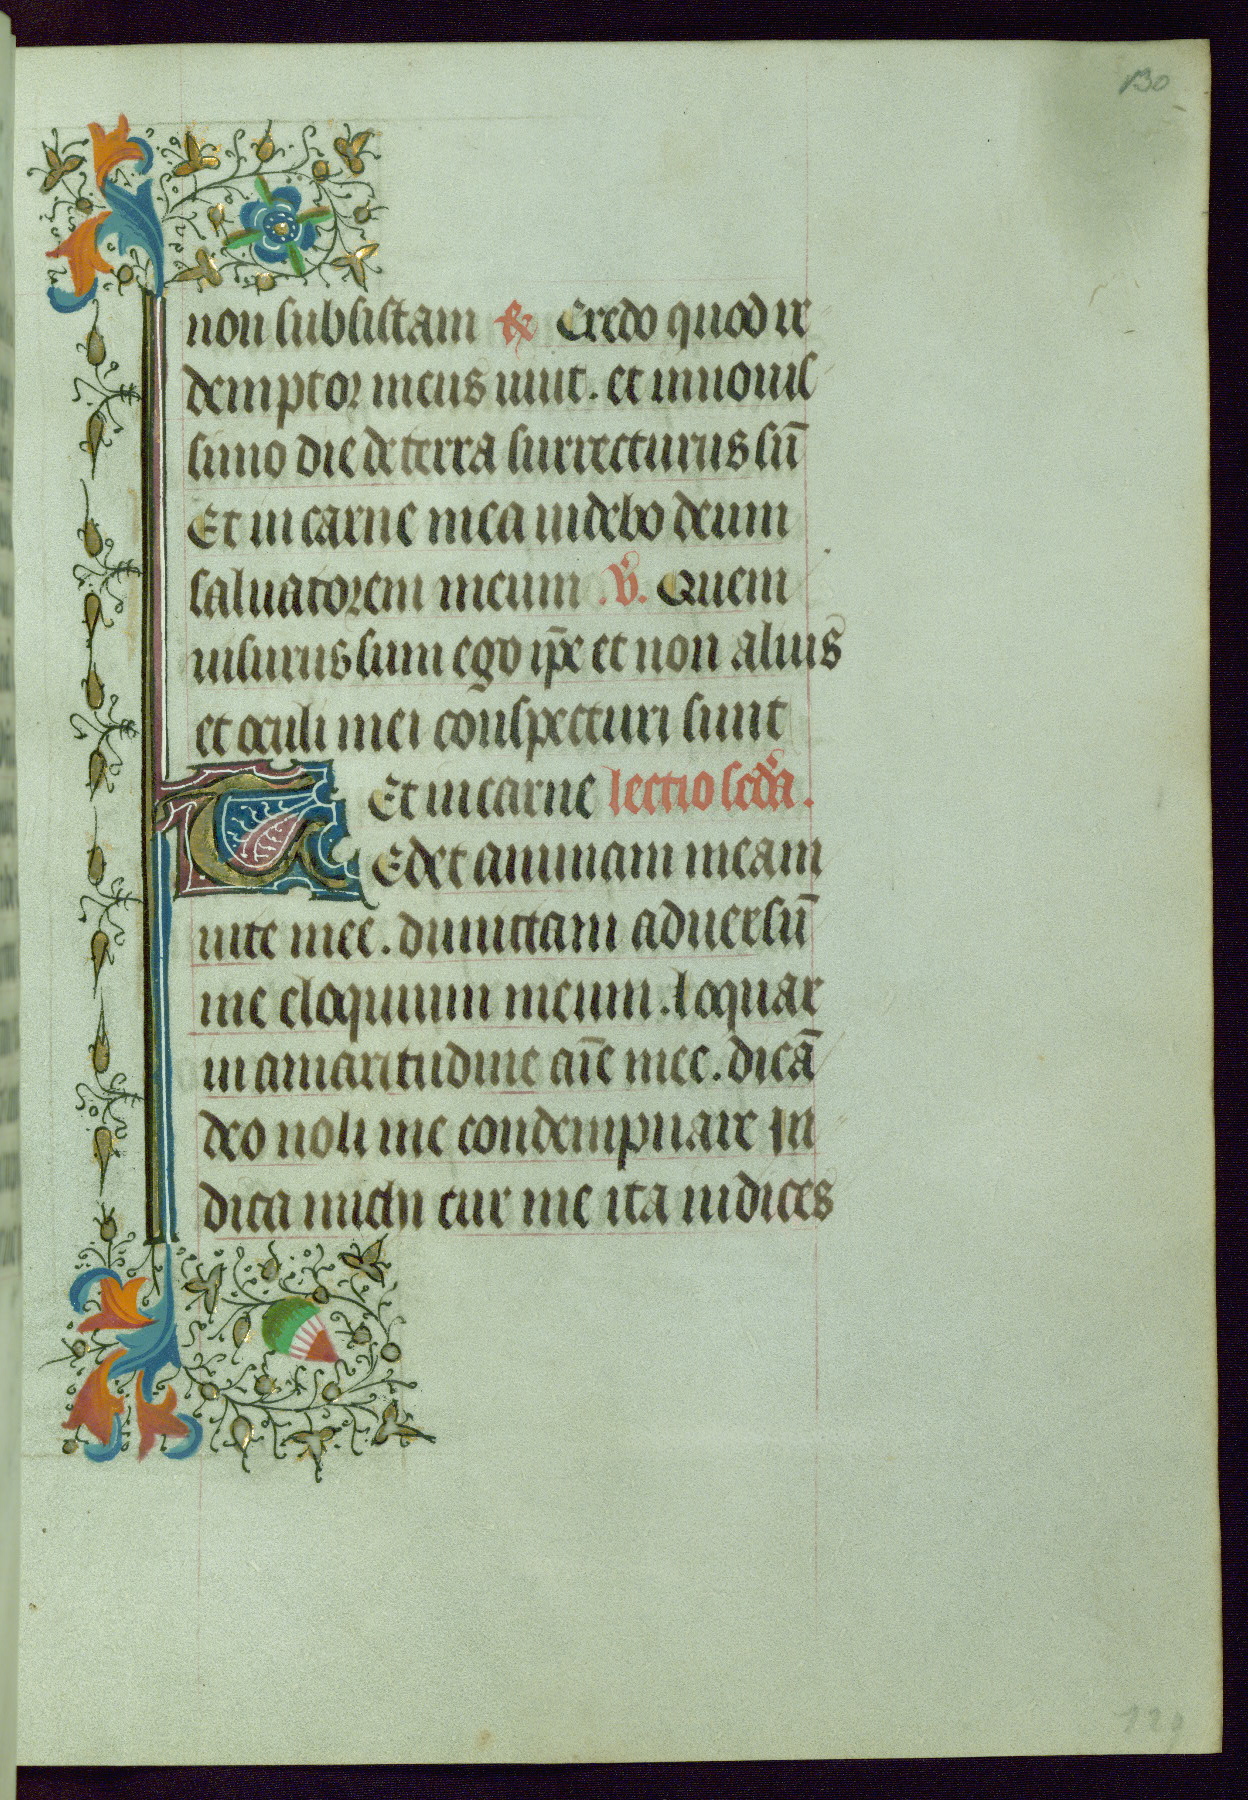 130
non subsistam ℟ Credo quod re
demptor meus uiuit. et in nouis
simo die de terra surrecturus sū
Et in carne mea uidebo deum
saluatorem meum .℣. Quem
uisurus sum ego ip̄e et non alius
et oculi mei conspecturi sunt
Et in carne lectio scd̄a.
TEdet animam meam
uite mee. dimittam aduersū
me eloquium meum. loquar
in amaritudine aīe mee. dicā
deo noli me condempnare In
dica michi cur me ita iudices